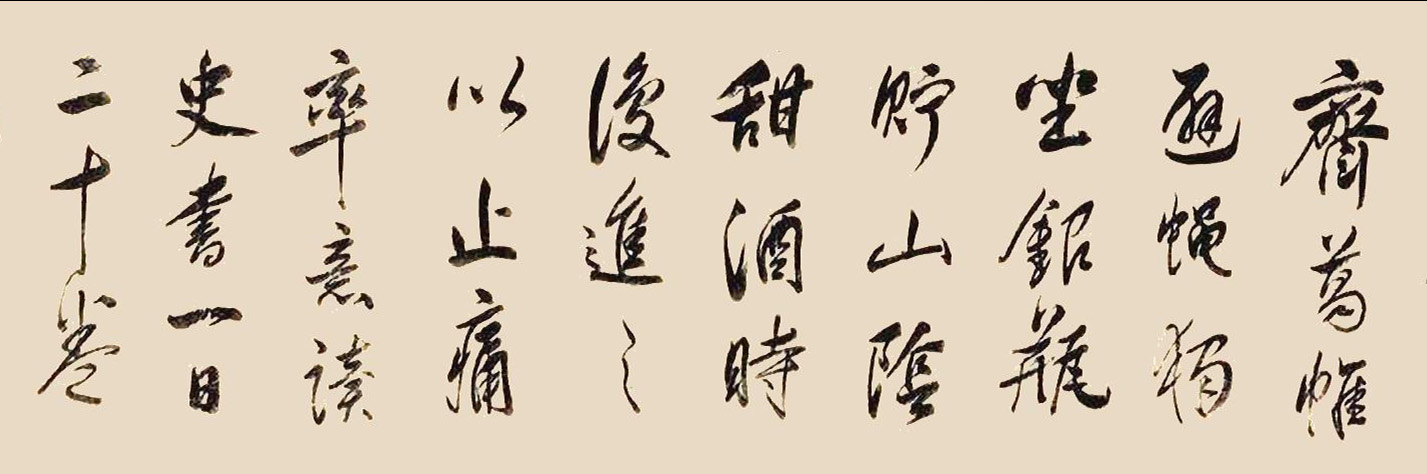 齋葛帷
避蠅獨
坐銀瓶
貯山陰
甜酒時
復進之
以止痛
率意讀
史書一日
二十卷